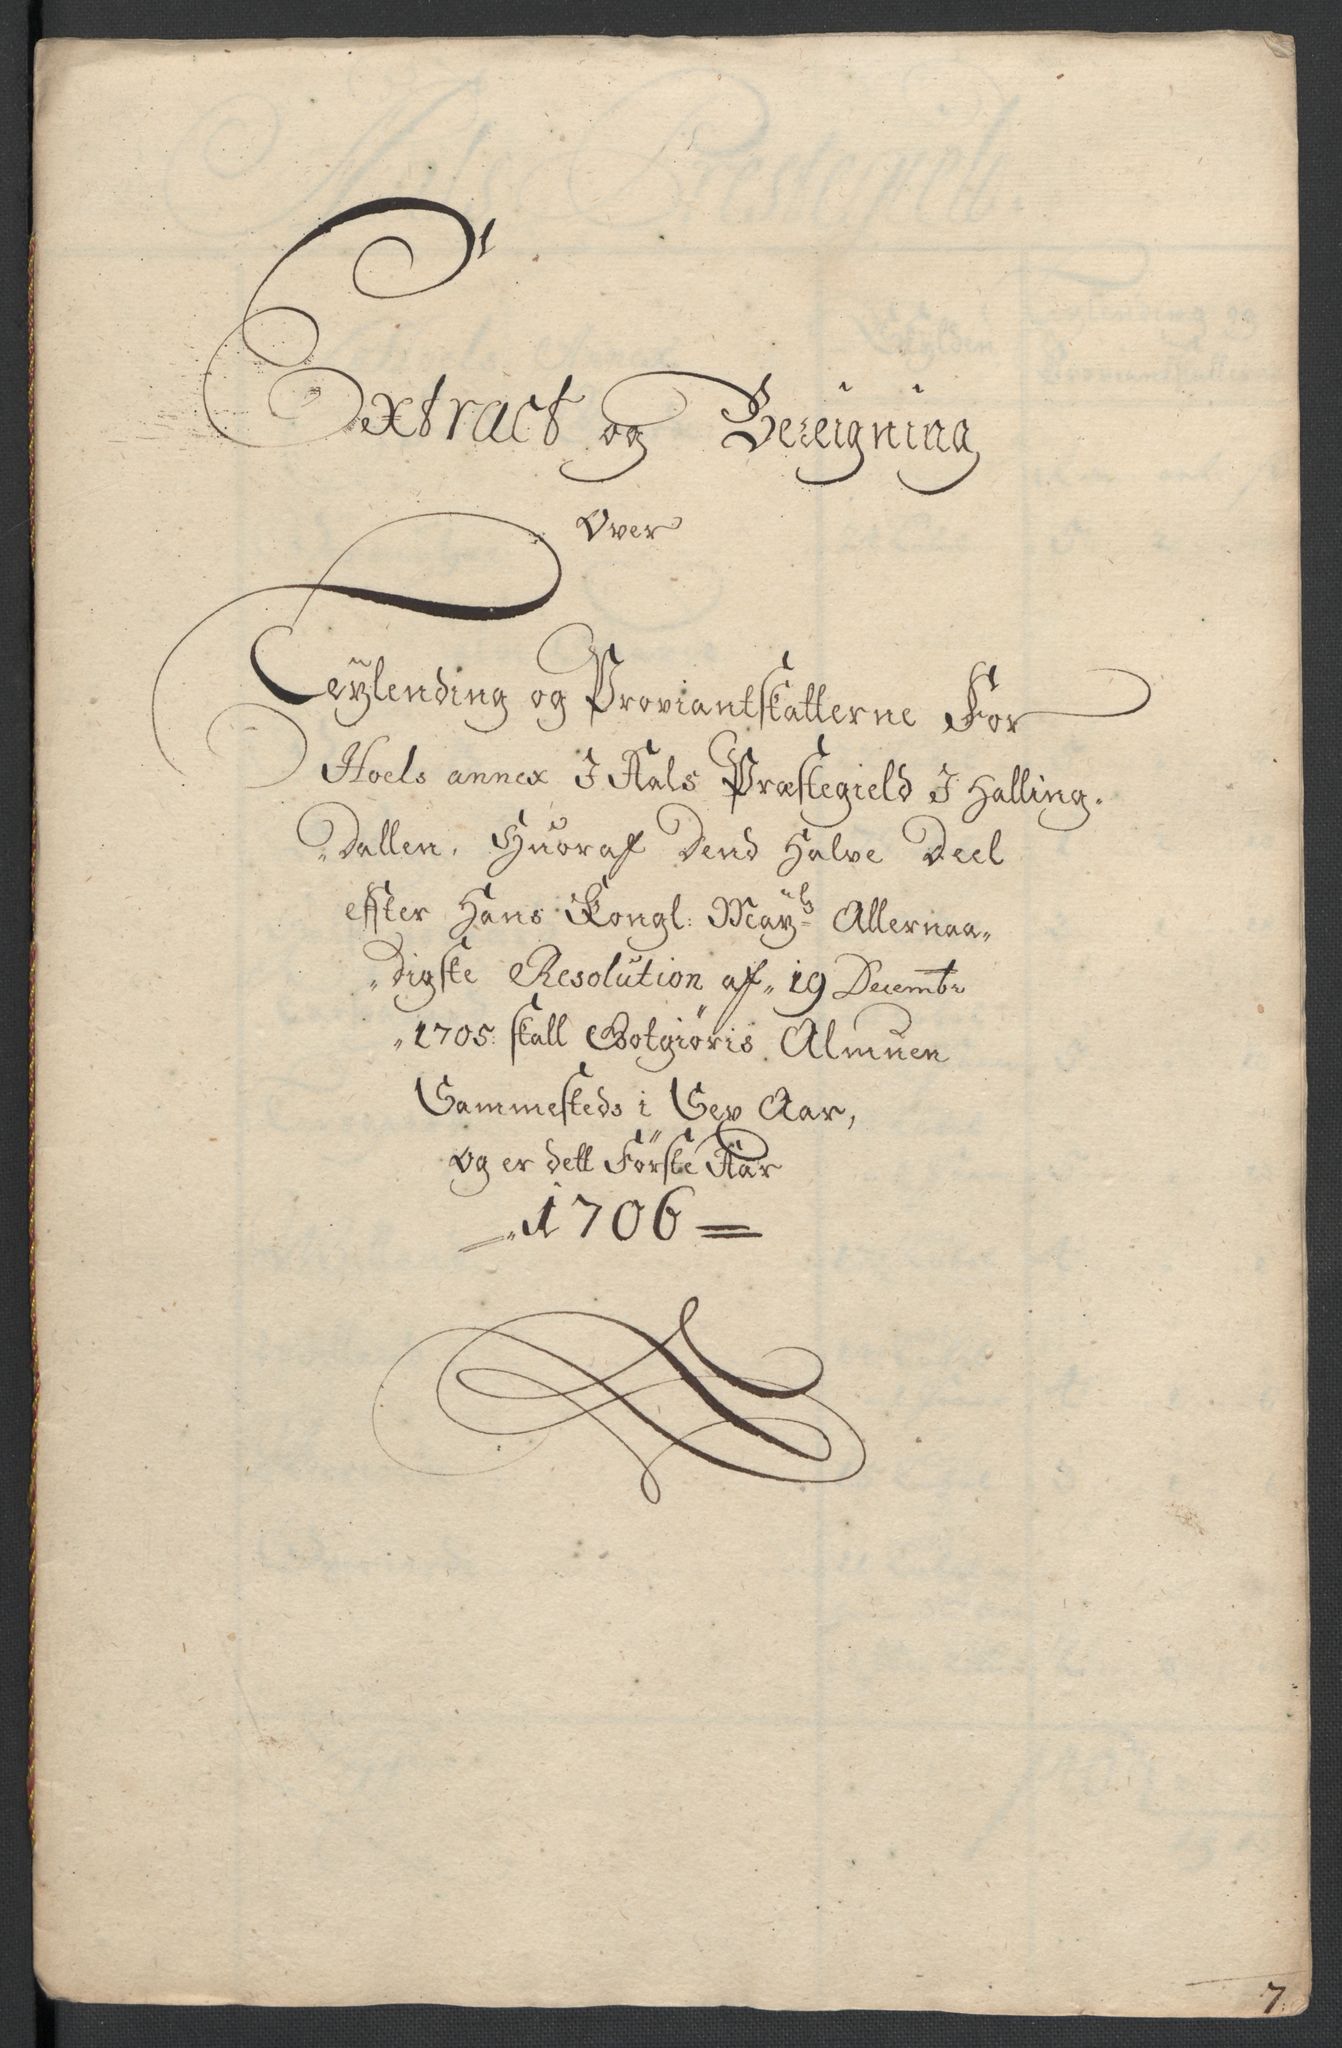 Extract og Bereigning
Over
Leylending og Proviantskatterne For
Hoels annex I Aals Præstegield I Halling-
"Dallen. Huoraf Dend Halve Deel
effter Hans Kongl: Mayts Allernaa"
"digste Resolution af" 19 Decembr
"1705: skall Gotgiøris Almuen
Sammesteds i Sex Aar,
og er dett Første Aar
"1706
7.